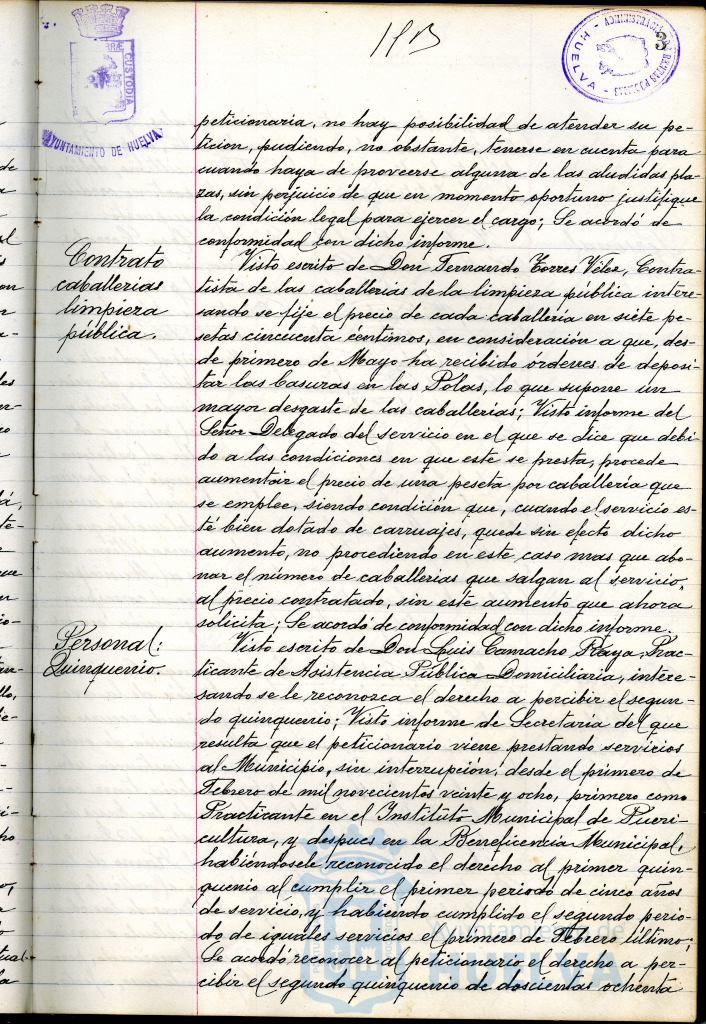 3
CUSTODIA
AYUNTAMIENTO DE HUELVA
HUELVA
peticionaria, no hay posibilidad de atender su pe-
ticion, pudiendo, no obstante, tenerse en cuenta para
cuando haya de proveerse alguna de las aludidas pla-
zas, sin perjuicio de que en momento oportuno justifique
la condición legal para ejercer el cargo; Se acordó de
conformidad con dicho informe.
Contrato
caballerias
limpieza
pública.
Visto escrito de Don Fernando Torres Vélez, Contra-
tista de las caballerias de la limpieza pública intere-
sando se fije el precio de cada caballería en siete pe-
setas cincuenta céntimos, en consideración a que, des-
de primero de Mayo ha recibido órdenes de deposi-
tar las basuras en las Polas, lo que supone un
mayor desgaste de las caballerías; Visto informe del
Señor Delegado del servicio en el que se dice que debi-
do a las condiciones en que este se presta, procede
aumentar el precio de una peseta por caballeria que
se emplee, siendo condición que, cuando el servicio es-
té bien dotado de carruajes, quede sin efecto dicho
aumento, no procediendo en este caso mas que abo-
nar el número de caballerias que salgan al servicio,
al precio contratado, sin este aumento que ahora
solicita; Se acordó de conformidad con dicho informe.
Personal:
Quinquenio.
Visto escrito de Don Luis Camacho Playa, Prac-
ticante de Asistencia Pública Domiciliaria, intere-
sando se le reconozca el derecho a percibir el segun-
do quinquenio; Visto informe de Secretaria del que
resulta que el peticionario viene prestando servicios
al Municipio, sin interrupción, desde el primero de
Febrero de mil novecientos veinte y ocho, primero como
Practicante en el Instituto Municipal de Pueri-
cultura, y despues en la Beneficencia Municipal,
habiéndosele reconocido el derecho al primer quin-
quenio al cumplir el primer periodo de cinco años
de servicio, y habiendo cumplido el segundo perio-
do de iguales servicios el primero de Febrero último;
Se acordó reconocer al peticionario el derecho a per-
cibir el segundo quinquenio de doscientas ochenta
Ayuntamiento de
HUELVA